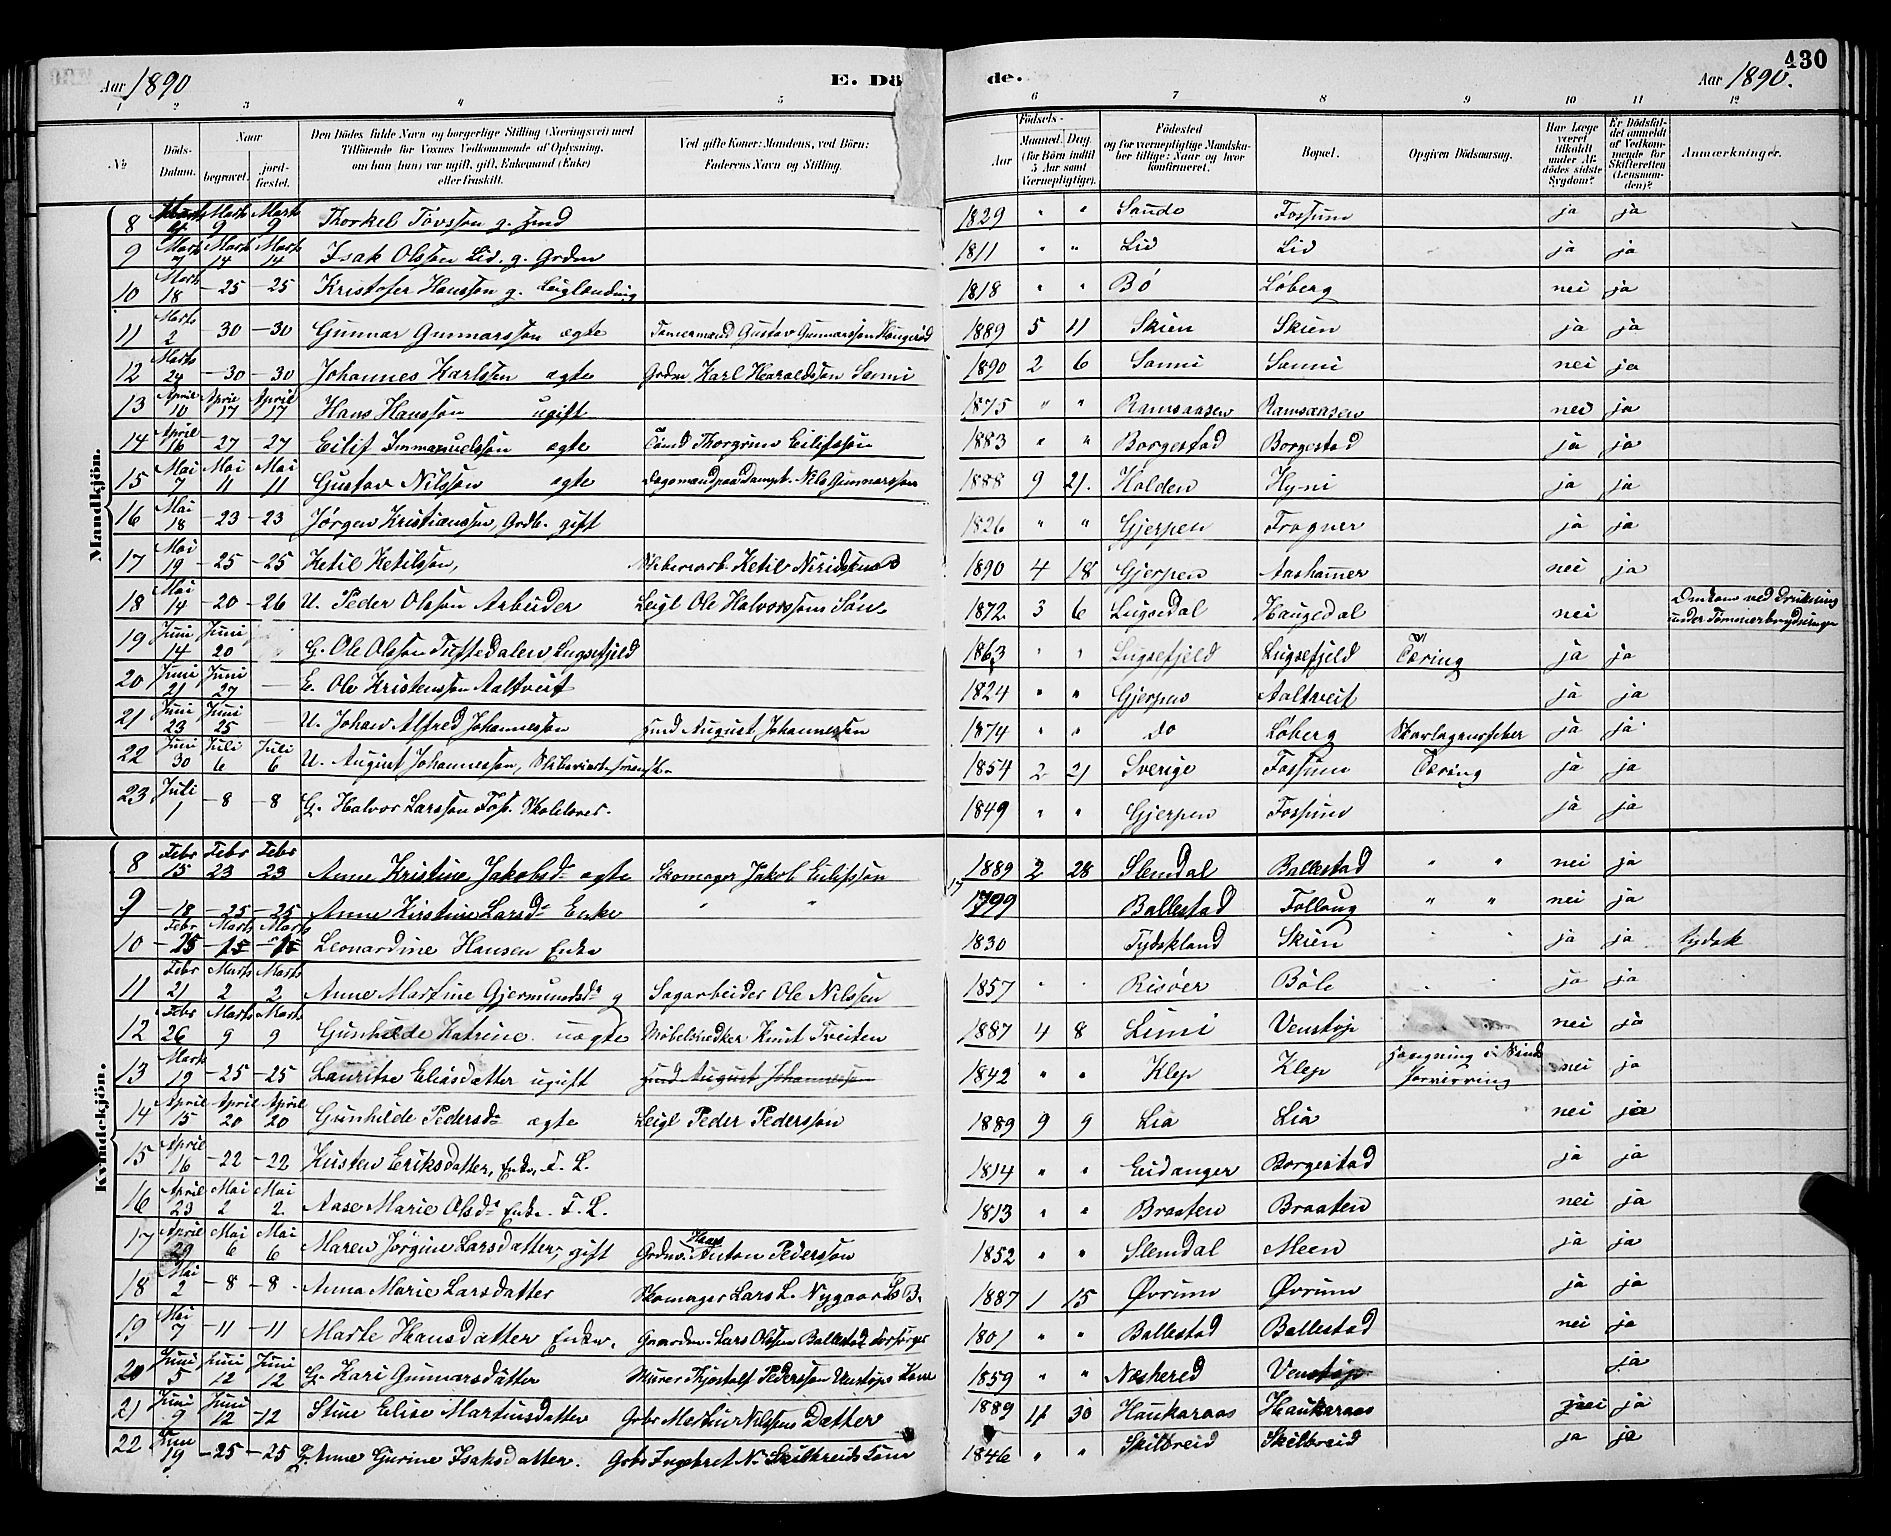 Aar 1890 E. Dö de. Aar 1890. 430
1 2 3 4 5 6 7 8 9 10 11 12
No Döds-Datum. Naar begravet. jordfæstet. Den Dödes fulde Navn og borgerlige Stilling (Næringsvei) med Tilföiende for Voxnes Vedkommende af Oplysning, om han (hun) var ugift, gift, Enkemand (Enke) eller fraskilt. Ved gifte Koner: Mandens, ved Börn: Faderens Navn og Stilling. Födsels- Aar Maaned Dag (for Börn indtil 5 Aar samt Værnepligtige). Födested og for værnepligtige Mandskaber tillige: Naar og hvor konfirmeret. Bopæl. Opgiven Dödsaarsag. Har Læge været tilkaldt under Afdödes sidste Sygdom? Er Dödsfaldet anmeldt af Vedkommende for Skifteretten (Lensmanden)? Anmærkninger.
Mandkjön.
8 Marts 9 Marts 9 Thorkel Tovsson g. 1829 " " Saude Fossum ja ja
9 Marts 7 Marts 14 Marts 14 Isak Olsson Lid. g. Grdm 1811 " " Lid Lid ja ja
10 Marts 18 - 25 - 25 Kristofer Hansson g. Leiglænding 1818 " " Bö Løberg nei ja
11 Marts 2 - 30 - 30 Gunnar Gunnarsson ægte Tømermand Gustav Gunnarsson 1889 5 11 Skien Skien ja ja
12 Marts 24 - 30 - 30 Johannes Karlsson ægte Grdm Karl Haraldsson Sanni 1890 2 6 Sanni Sanni nei ja
13 April 10 April 17 April 17 Hans Hansson ugift 1875 " " Ramsaasen Ramsaasen nei ja
14 April 16 - 27 - 27 Eilif Immanuelsson ægte Thorgrim Eilifsson 1883 " " Borgestad Borgestad ja ja
15 Mai 7 Mai 11 Mai 11 Gustav Nilsson ægte Nils Gunnarsson 1888 9 21. Holden Hyni ja ja
16 Mai 18 - 23 - 23 Jørgen Kristiansson, Grdb. gift 1826 " " Gjerpen Frogner ja ja
17 Mai 19 - 25 - 25 Ketil Ketilsson, Ketil 1890 4 18 Gjerpen Aashamer nei ja
18 Mai 14 - 20 - 26 U. Peder Olsson Arbeider Leigl Ole Halvorssons Søn 1872 3 6 Lugsedal Haugedal nei Omkom ved Drukning under Tømmerbrydninger
19 Juni 14 Juni 20 G. Ole Olsson Tuftedalen Lugsefjeld 1863 " " Lugsefjeld Lugsefjeld Tæring ja ja
20 Juni 21 Juni 27 - E. Ole Kristensson Aaltveit 1824 " " Gjerpen Aaltveit ja ja
21 Juni 23 Juni 25 - U. Johan Alfred Johannesson August Johannesson 1874 " " do Løberg Skarlagensfeber ja ja
22 Juni 30 Juli 6 Juli 6 U. August Johannesson, 1854 2 21 Sverige Fossum Tæring ja ja
23 Juli 1 - 8 - 8 G. Halvor Larsson Fos. Skolelærer. 1849 " " Gjerpen Fossum ja ja
Kvindekjön.
8 Febr 15 Febr 23 Febr 23 Anne Kristine Jakobsdr ægte Skomager Jakob Eilifsson 1889 2 28 Slemdal Ballestad " " nei ja
9 - 18 - 25 - 25 Anne Kirstine Larsdr Enke " " 1799 Ballestad Follaug " " nei ja
10 Febr - 25 Marts - 15 Marts - 15 Leonardine Hansen Enke 1830 Tydskland Skien " " ja ja tydsk
11 Febr 21 Marts 2 Marts 2 Anne Martine Gjermundsdr g Sagarbeider Ole Nilssen 1857 " " Risöer Böle " " ja ja
12 Febr 26 Marts 9 Marts 9 Gunhilde Katrine uægte Møbelsnedker Knut Tveiten 1887 4 8 Limi Venstøp nei ja
13 Marts 19 - 25 - 25 Lauritse Eliasdatter ugift August Johannesson 1842 " " Klep Klep Sindsforvirring nei ja
14 April 15 April 20 April 20 Gunhilde Pedersdr ægte Leigl Peder Pedersson 1889 9 9 Lia Lia nei ja
15 April 16 - 22 - 22 Kirsten Eriksdatter, Enke, F. L. 1814 " " Eidanger Borgestad ja ja
16 April 23 Mai 2 Mai 2 Aase Marie Olsdr Enke. F. L. 1813 " " Braaten Braaten nei ja
17 April 29 Mai 6 Mai 6 Maren Jørgine Larsdatter, gift Grdm. Hans Anton Pedersson 1852 " " Slemdal Meen ja ja
18 Mai 2 - 8 - 8 Anna Marie Larsdatter Skomager Lars L. Nygaard 1887 1 15 Øvrum Øvrum ja ja
19 Mai 7 - 11 - 11 Marte Hansdatter Enke. Gaardm. Lars Olsson Ballestad forsørger 1801 " " Ballestad Ballestad nei ja
20 Juni 5 Juni 12 Juni 12 G. Kari Gunnarsdatter Murer Kjøstolf Pedersson Venstøps Kone 1859 " " Næshered Venstøp ja
21 Juni 9 Juni 12 - 12 Stine Elise Martinsdatter Grbr Martin Nilssens Datter 1889 4 30 Haukaraas Haukaraas nei ja
22 Juni 19 - 25 - 25 G. Anne Gurine Isaksdatter. Grbr Ingebret N. Skilbreids Kone 1846 " " Skilbreid Skilbreid ja ja